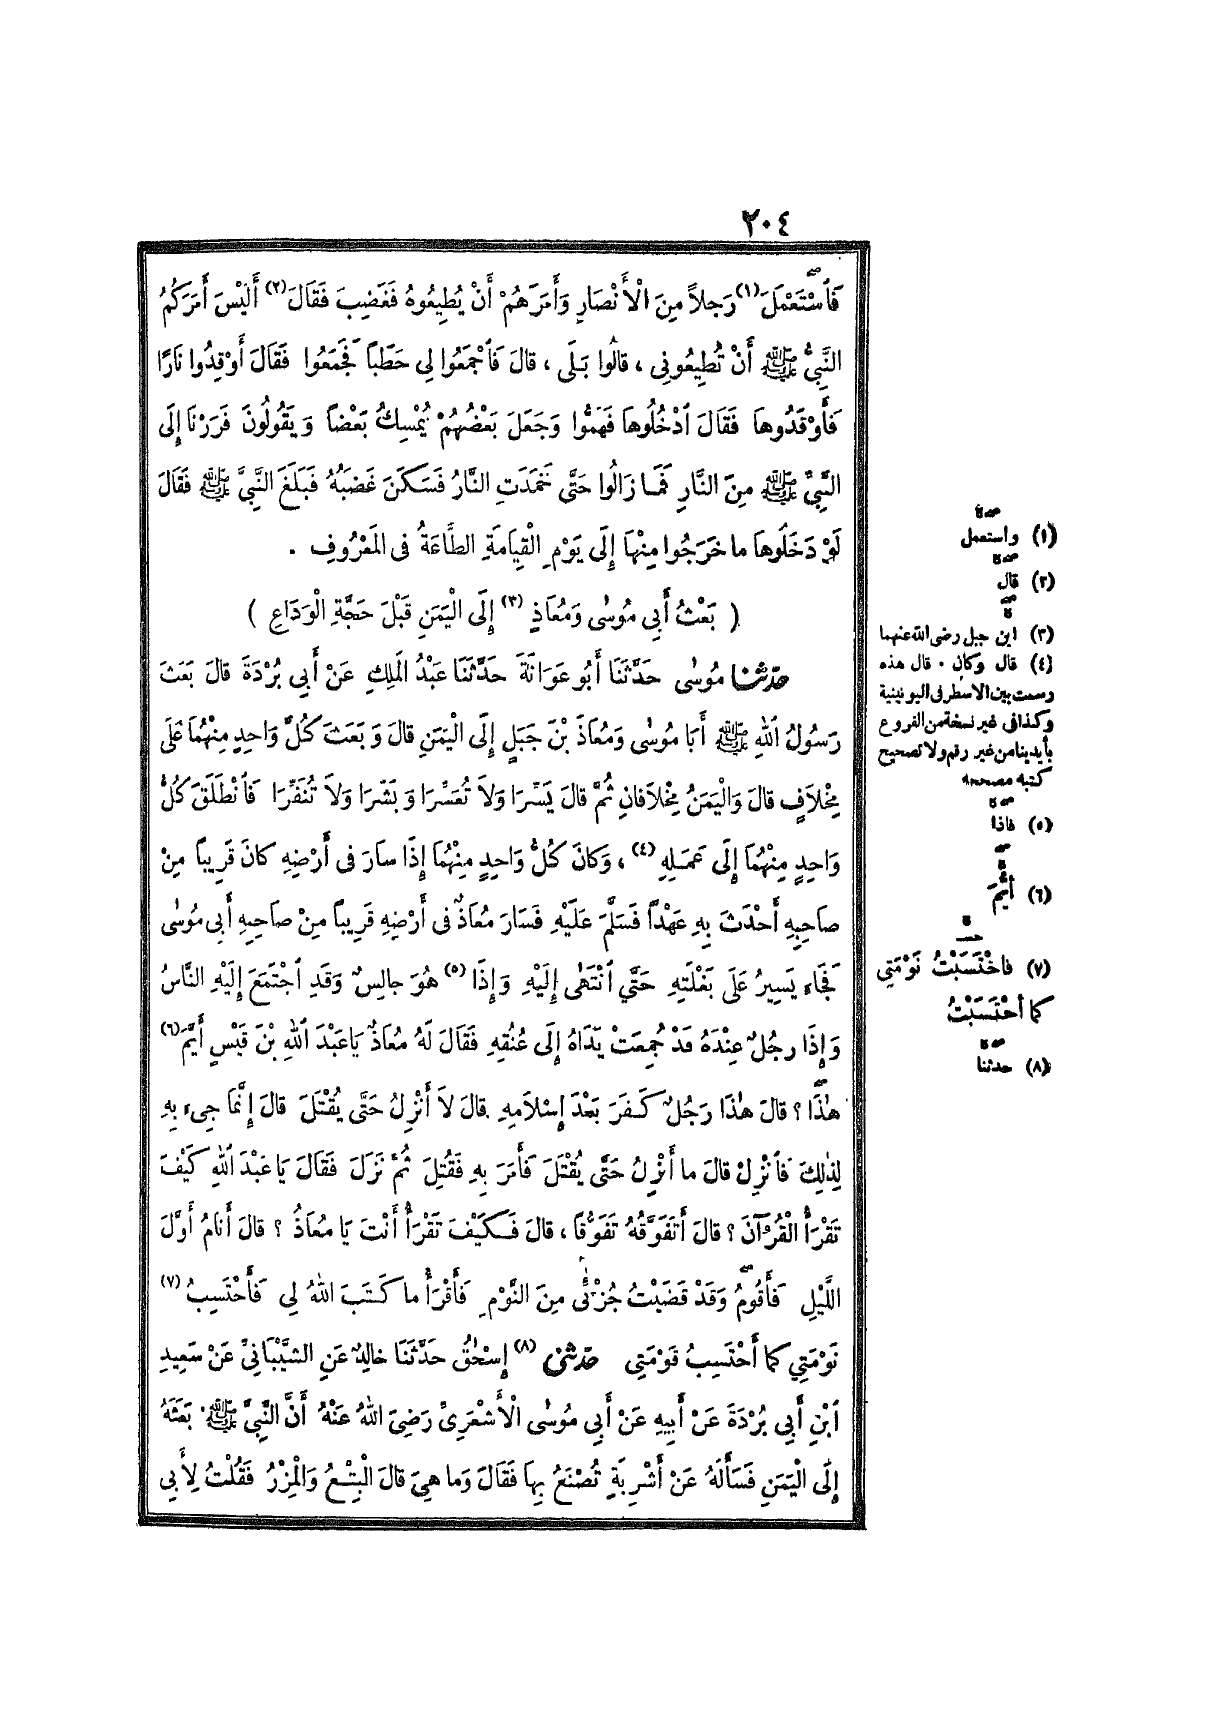 ٢٠٤
فَاسْتَعْمَلَ (١) رَجُلاً مِنَ الْأَنْصَارِ وَأَمَرَهُمْ أَنْ يُطِيعُوهُ فَغَضِبَ فَقَالَ (٢) أَلَيْسَ أَمَرَكُمُ
النَّبِيُّ ﷺ أَنْ تُطِيعُونِي ، قالُوا بَلَى ، قالَ فَاجْمَعُوا لِي حَطَباً فَجَمَعُوا فَقَالَ أَوْقِدُوا نَارًا
فَأَوْقَدُوهَا فَقَالَ ادْخُلُوهَا فَهَمُّوا وَجَعَلَ بَعْضُهُمْ يُمْسِكُ بَعْضاً وَيَقُولُونَ فَرَرْنَا إِلَى
النَّبِيِّ ﷺ مِنَ النَّارِ فَمَا زَالُوا حَتَّى خَمَدَتِ النَّارُ فَسَكَنَ غَضَبُهُ فَبَلَغَ النَّبِيَّ ﷺ فَقَالَ
لَوْ دَخَلُوهَا ما خَرَجُوا مِنْهَا إِلَى يَوْمِ الْقِيَامَةِ الطَّاعَةُ فِي المَعْرُوفِ .
( بَعْثُ أَبِي مُوسٰى وَمُعَاذٍ (٣) إِلَى الْيَمَنِ قَبْلَ حَجَّةِ الْوَدَاعِ )
حَدَّثَنَا مُوسٰى حَدَّثَنَا أَبُو عَوَانَةَ حَدَّثَنَا عَبْدُ المَلِكِ عَنْ أَبِي بُرْدَةَ قالَ بَعَثَ
رَسُولُ اللهِ ﷺ أَبَا مُوسٰى وَمُعَاذَ بْنَ جَبَلٍ إِلَى الْيَمَنِ قالَ وَبَعَثَ كُلَّ وَاحِدٍ مِنْهُمَا عَلَى
مِخْلاَفٍ قالَ وَالْيَمَنُ مِخْلاَفانِ ثُمَّ قالَ يَسِّرَا وَلاَ تُعَسِّرَا وَبَشِّرَا وَلاَ تُنَفِّرَا فَانْطَلَقَ كُلُّ
وَاحِدٍ مِنْهُمَا إِلَى عَمَلِهِ (٤) ، وَكانَ كُلُّ وَاحِدٍ مِنْهُمَا إِذَا سَارَ فِي أَرْضِهِ كانَ قَرِيباً مِنْ
صَاحِبِهِ أَحْدَثَ بِهِ عَهْدًا فَسَلَّمَ عَلَيْهِ فَسَارَ مُعَاذٌ فِي أَرْضِهِ قَرِيباً مِنْ صَاحِبِهِ أَبِي مُوسٰى
فَجَاءَ يَسِيرُ عَلَى بَغْلَتِهِ حَتَّى انْتَهَى إِلَيْهِ وَإِذَا (٥) هُوَ جالِسٌ وَقَدِ اجْتَمَعَ إِلَيْهِ النَّاسُ
وَإِذَا رَجُلٌ عِنْدَهُ قَدْ جُمِعَتْ يَدَاهُ إِلَى عُنُقِهِ فَقَالَ لَهُ مُعَاذٌ يَا عَبْدَ اللهِ بْنَ قَيْسٍ أَيَّمَ (٦)
هٰذَا ؟ قالَ هٰذَا رَجُلٌ كَفَرَ بَعْدَ إِسْلاَمِهِ قالَ لاَ أَنْزِلُ حَتَّى يُقْتَلَ قالَ إِنَّمَا جِيءَ بِهِ
لِذٰلِكَ فَانْزِلْ قالَ ما أَنْزِلُ حَتَّى يُقْتَلَ فَأَمَرَ بِهِ فَقُتِلَ ثُمَّ نَزَلَ فَقَالَ يَا عَبْدَ اللهِ كَيْفَ
تَقْرَأُ الْقُرْآنَ ؟ قالَ أَتَفَوَّقُهُ تَفَوُّقًا ، قالَ فَكَيْفَ تَقْرَأُ أَنْتَ يَا مُعَاذُ ؟ قالَ أَنَامُ أَوَّلَ
اللَّيْلِ فَأَقُومُ وَقَدْ قَضَيْتُ جُزْئِي مِنَ النَّوْمِ فَأَقْرَأُ ما كَتَبَ اللهُ لِي فَأَحْتَسِبُ (٧)
نَوْمَتِي كما أَحْتَسِبُ قَوْمَتِي حَدَّثَنِي (٨) إِسْحٰقُ حَدَّثَنَا خالِدٌ عَنِ الشَّيْبَانِيِّ عَنْ سَعِيدِ
ابْنِ أَبِي بُرْدَةَ عَنْ أَبِيهِ عَنْ أَبِي مُوسٰى الْأَشْعَرِيِّ رَضِيَ اللهُ عَنْهُ أَنَّ النَّبِيَّ ﷺ بَعَثَهُ
إِلَى الْيَمَنِ فَسَأَلَهُ عَنْ أَشْرِبَةٍ تُصْنَعُ بِهَا فَقَالَ وَما هِيَ قالَ الْبِتْعُ وَالْمِزْرُ فَقُلْتُ لِأَبِي
(١) واستعمل
(٢) قال
(٣) ابن جبل رضى الله عنهما
(٤) قال وكان . قال هذه
رسمت بين الاسطر فى اليونينية
وكذا فى غير نسخة من الفروع
بأيدينا من غير رقم ولا تصحيح
كتبه مصححه
(٥) فاذا
(٦) أَيُّمَ
(٧) فاحْتَسَبْتُ نَوْمَتِي
كما احْتَسَبْتُ
(٨) حدثنا